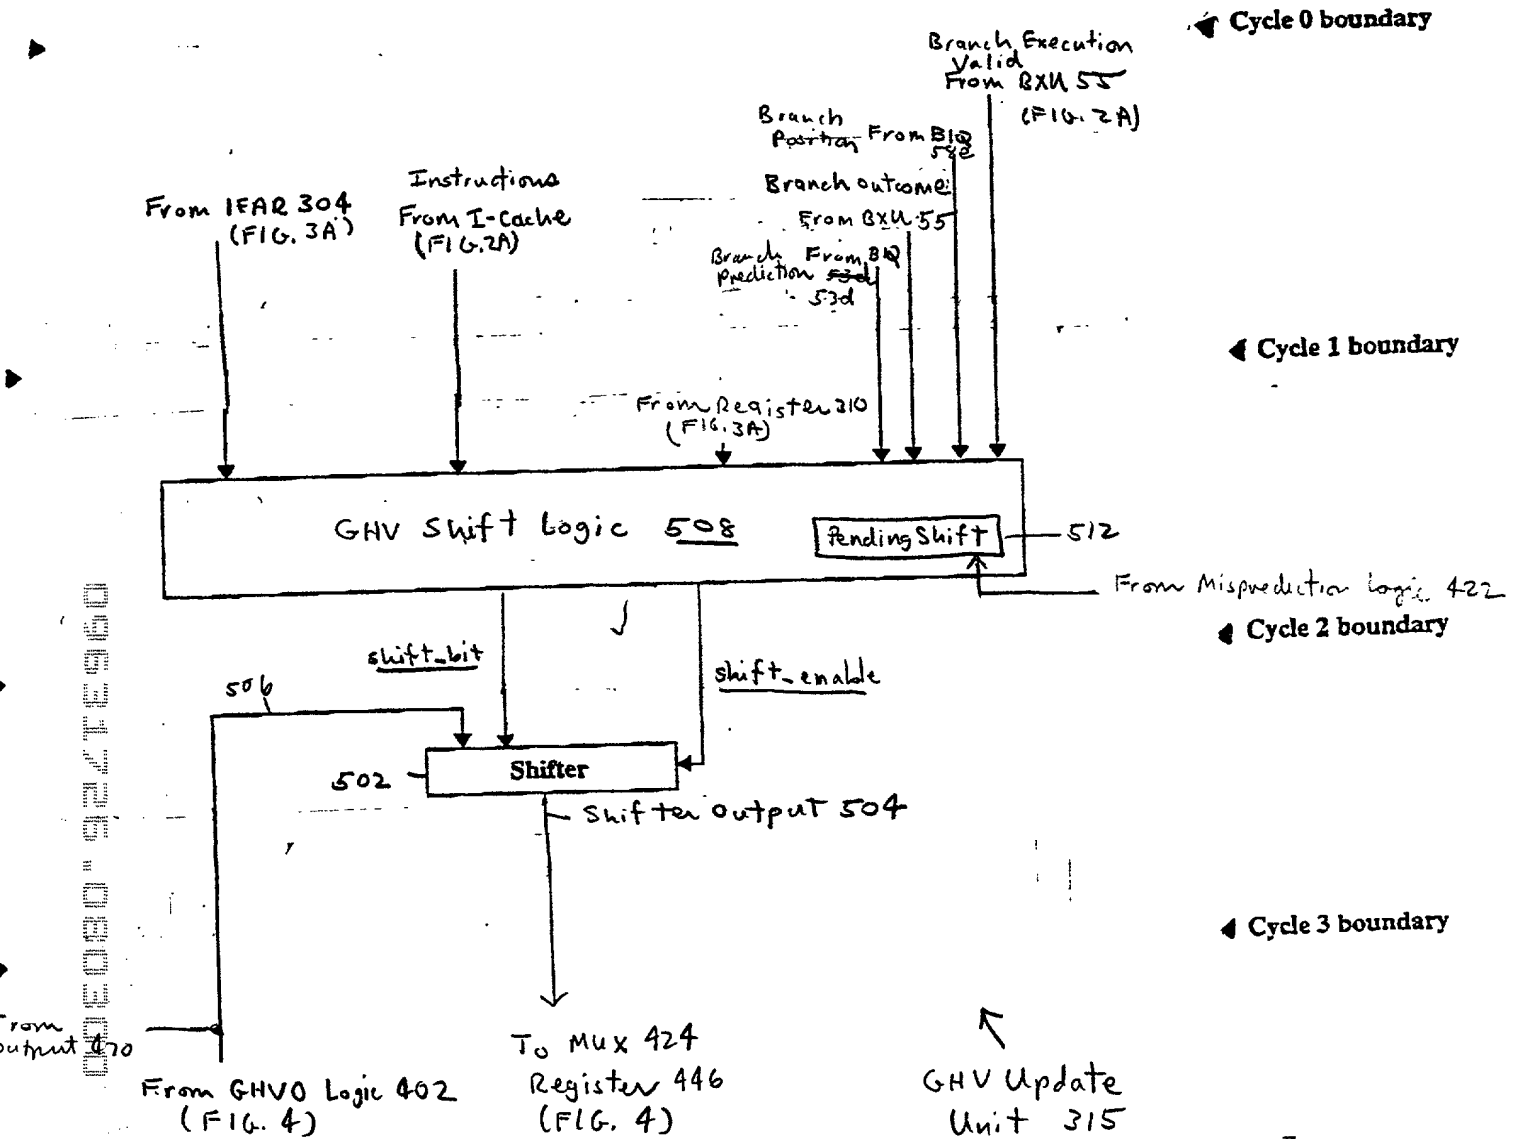 Cycle 0 boundary
Branch Execution
Valid
From BXU 55
(FIG. 2A)
Branch
Position From BIQ
Branch outcome
From BXU 55
Branch From BIQ
Prediction 53d
53d
Instructions
From I-Cache
(FIG. 2A)
From IFAR 304
(FIG. 3A)
Cycle 1 boundary
From Register 310
(FIG. 3A)
GHV Shift Logic 508
Pending Shift
512
From Misprediction Logic 422
Cycle 2 boundary
shift_bit
shift_enable
506
Shifter
502
Shifter Output 504
Cycle 3 boundary
From
output 470
From GHVO Logic 402
(FIG. 4)
To MUX 424
Register 446
(FIG. 4)
GHV Update
Unit 315
09631726.080300